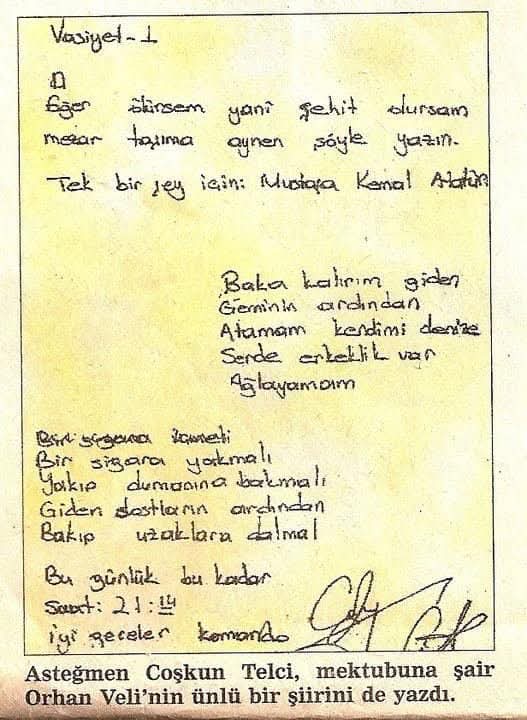 Vasiyet-1
Eğer ölürsem yani şehit olursam
mezar taşıma aynen şöyle yazın.
Tek bir şey için: Mustafa Kemal Atatürk
Baka kalırım giden
Geminin ardından
Atamam kendimi denize
Serde erkeklik var
Ağlayamam
Bir sigara
Bir sigara yakmalı
Yakıp dumanına bakmalı
Giden dostların ardından
Bakıp uzaklara dalmal
Bu günlük bu kadar
Saat: 21:14
iyi geceler komando
Asteğmen Coşkun Telci, mektubuna şair
Orhan Veli'nin ünlü bir şiirini de yazdı.